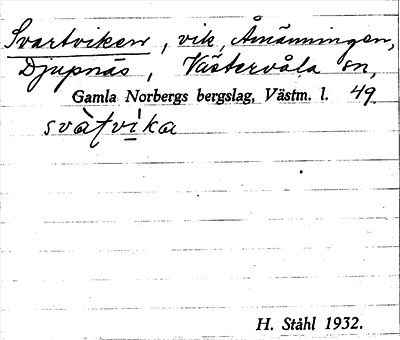 Svartviken, vik, Åmänningen,
Djupnäs, Västervåla sn,
Gamla Norbergs bergslag, Västm. l. 49.
svàtvìka
H. Ståhl 1932.